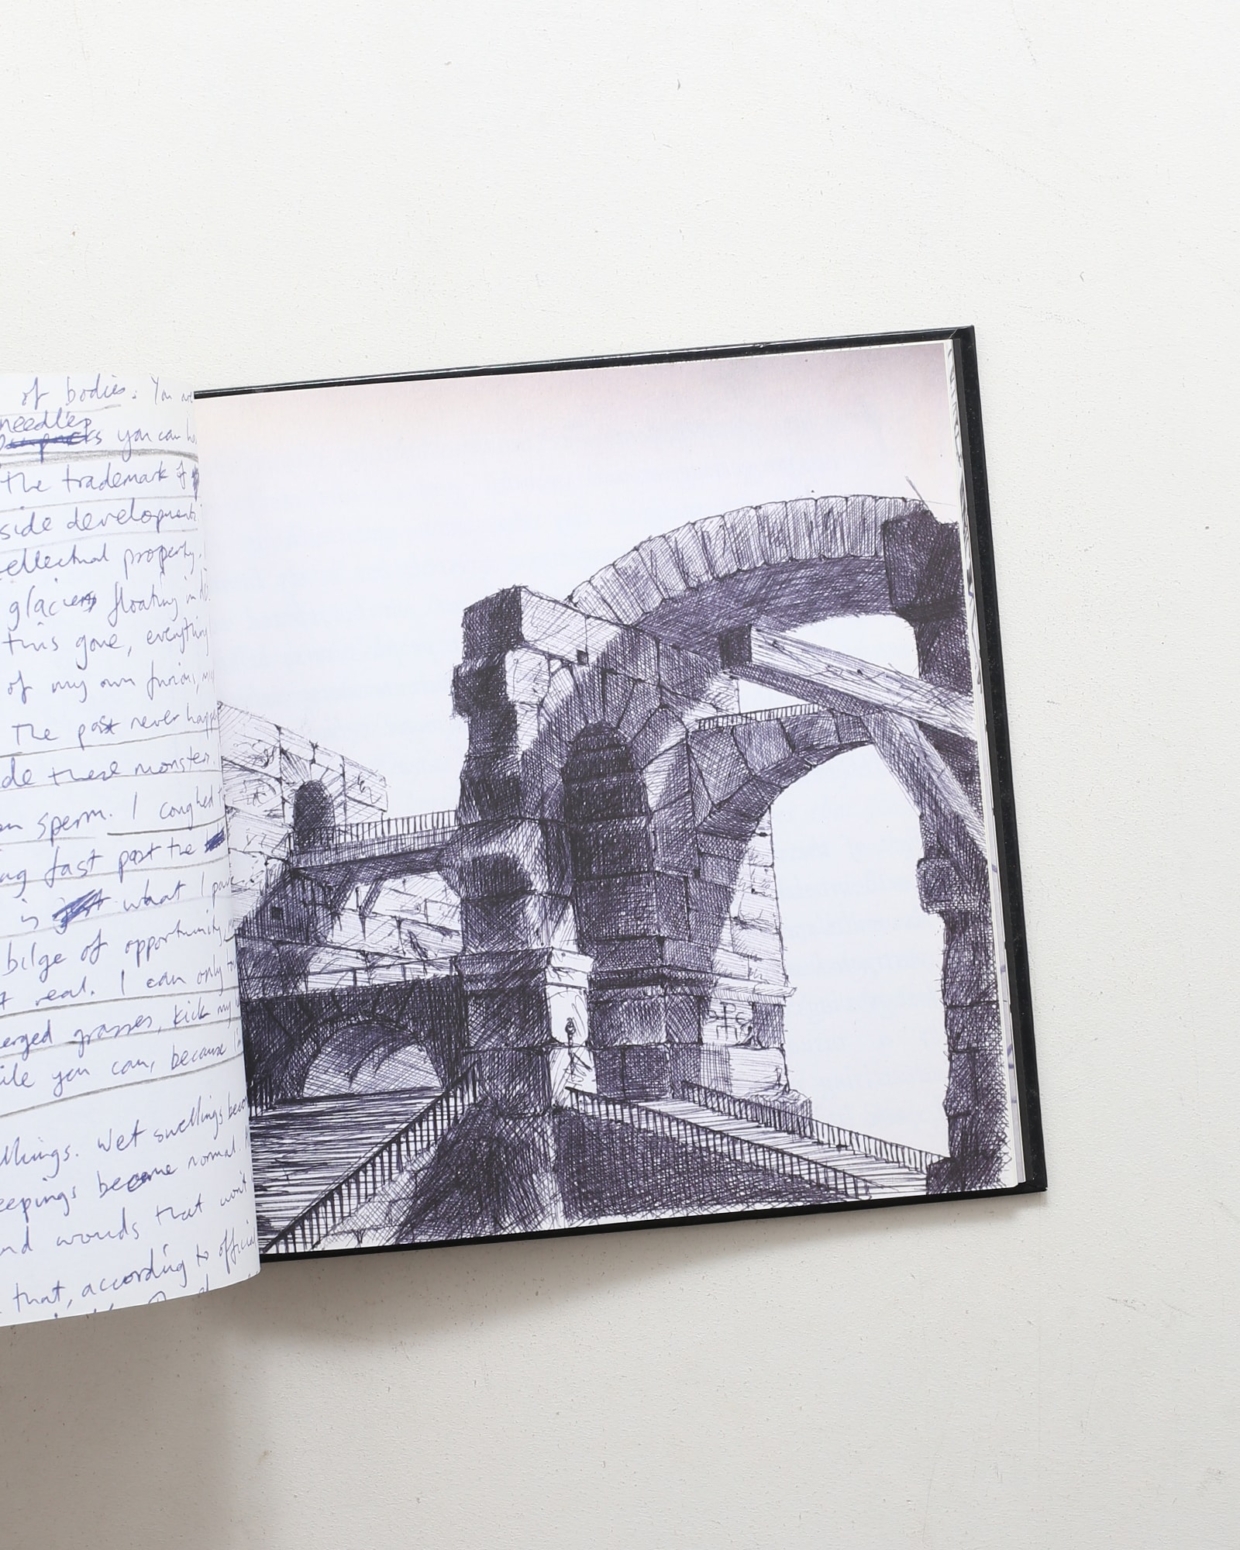 of bodies. You
needles
you can
the trademark of
side development
ellectual property.
glaciers floating in
this gone, everything
of my own
The past never
de these monster
sperm. I coughed
ng fast past the
is what I
bilge of opportunity
real. I can only
erged grasses, kick my
ile you can, because
llings. Wet swellings
eepings become normal
nd wounds that won't
that, according to